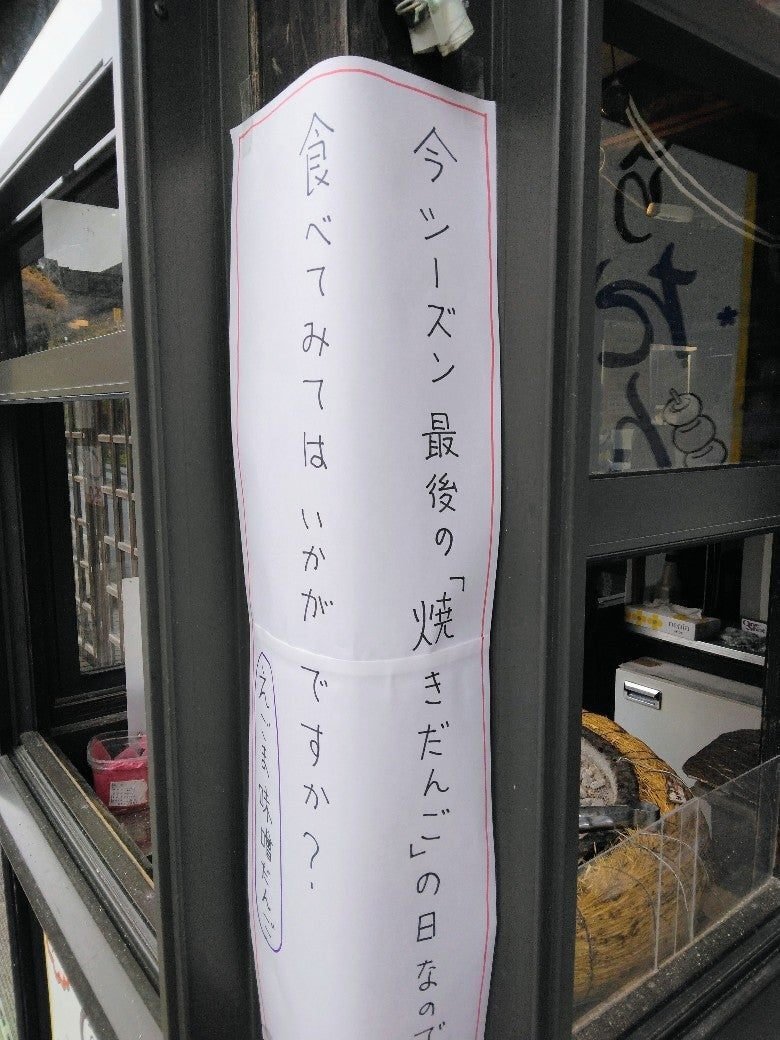 今シーズン最後の「焼きだんご」の日なので
食べてみてはいかがですか？
えごま味噌だんご
だん